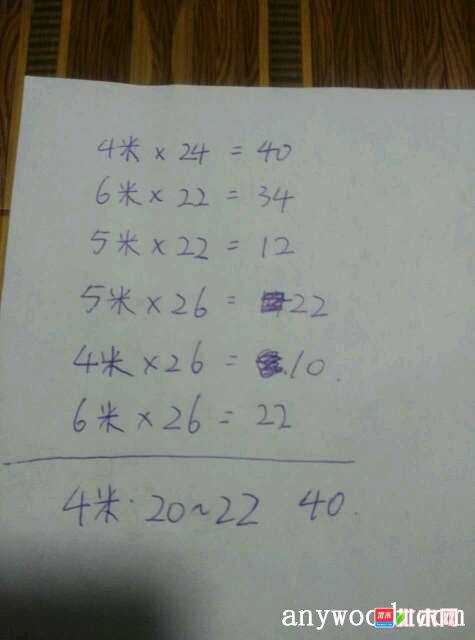 4米 × 24 = 40
6米 × 22 = 34
5米 × 22 = 12
5米 × 26 = 22
4米 × 26 = 10.
6米 × 26 = 22
4米·20~22 40.